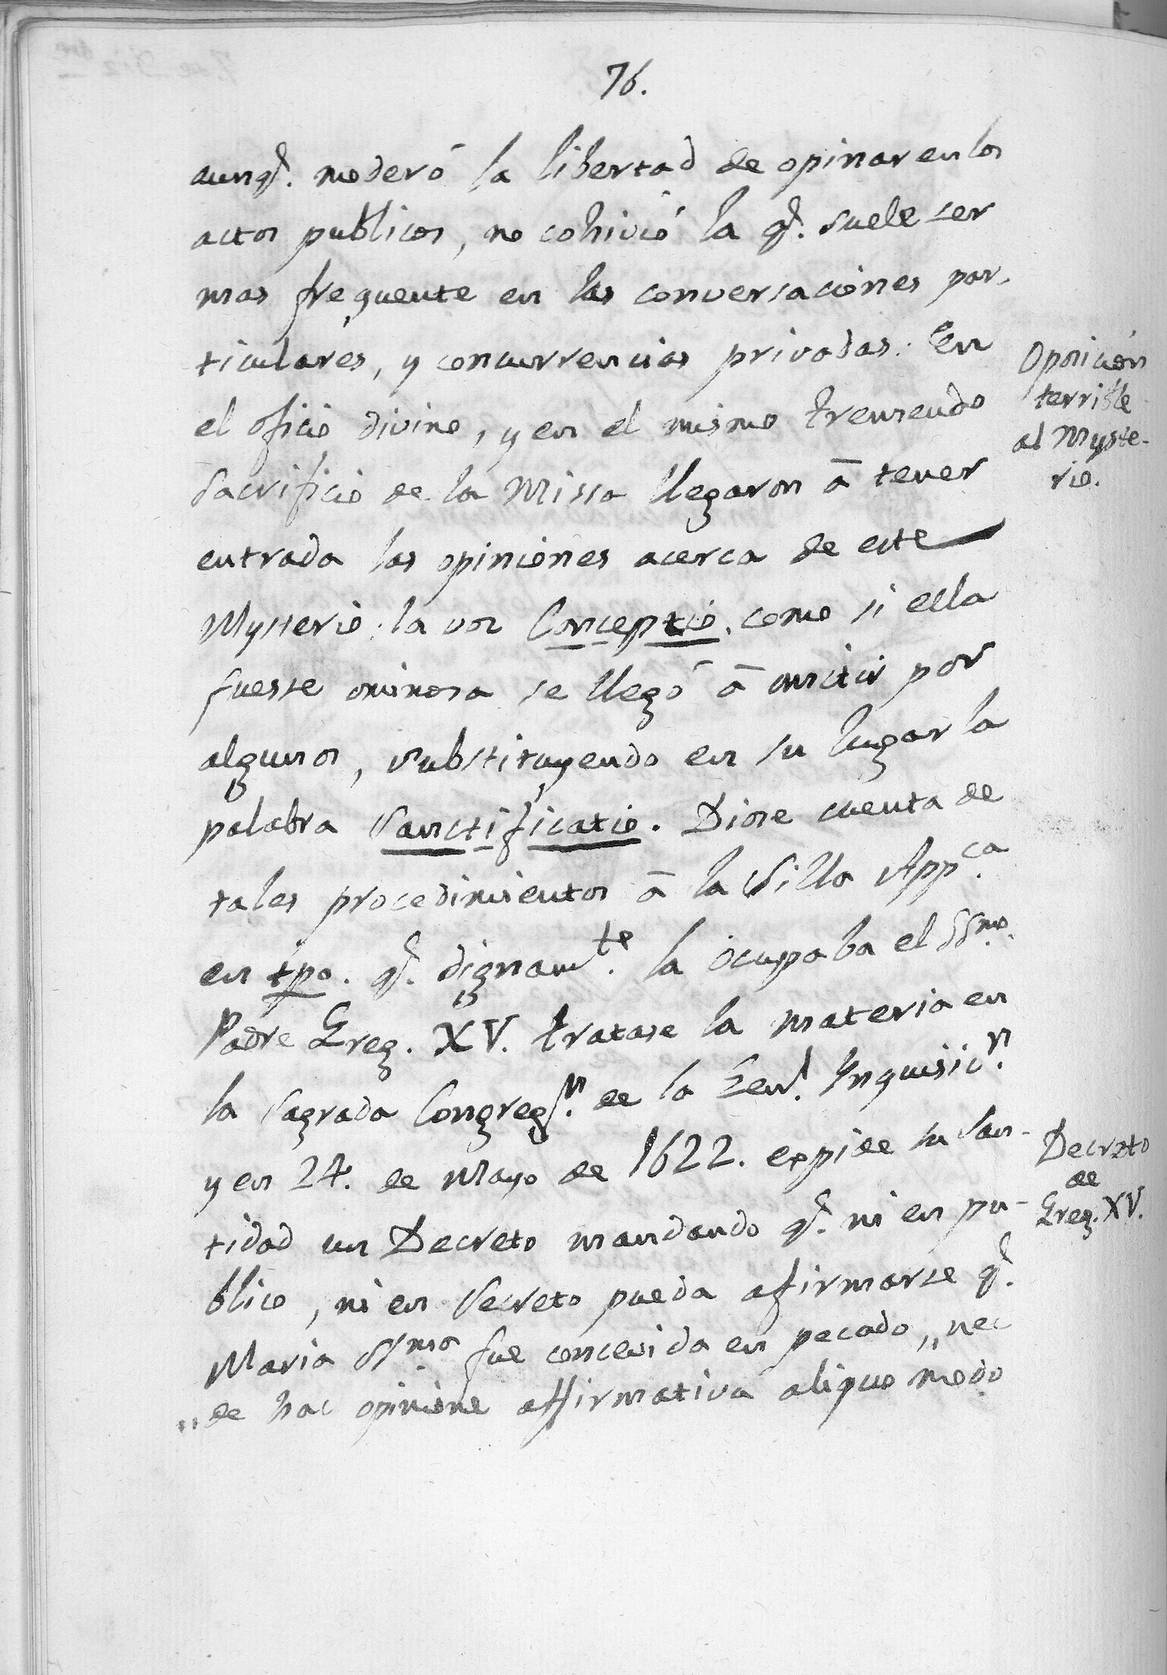 76.
aunq̃. moderó la libertad de opinar en los
actos publicos, no cohivió la q̃. suele ser
mas frequente en las conversaciones par-
ticulares, y concurrencias privadas. En
el oficio divino, y en el mismo tremendo
Sacrificio de la Missa llegaron â tener
entrada las opiniones acerca de este
Mysterio: la voz Conceptio, como si ella
fuesse ominosa se llegó â omitir por
algunos, substituyendo en su lugar la
palabra Sanctificatio. Diose cuenta de
tales procedimientos â la Silla App.ca
en tpo. q̃. dignam.te la ocupaba el SSmo.
Padre Greg. XV. tratase la materia en
la Sagrada Congreg.n de la Gen.l Inquisic.n
y en 24. de Mayo de 1622. expide su San-
tidad un Decreto mandando q̃. ni en pu-
blico, ni en Secreto pueda afirmarse q̃.
Maria SSma fue concevida en pecado,, nec
,, de hac opinione affirmativa aliquo modo
Oposición
terrible
al Myste-
rio.
Decreto
de
Greg. XV.